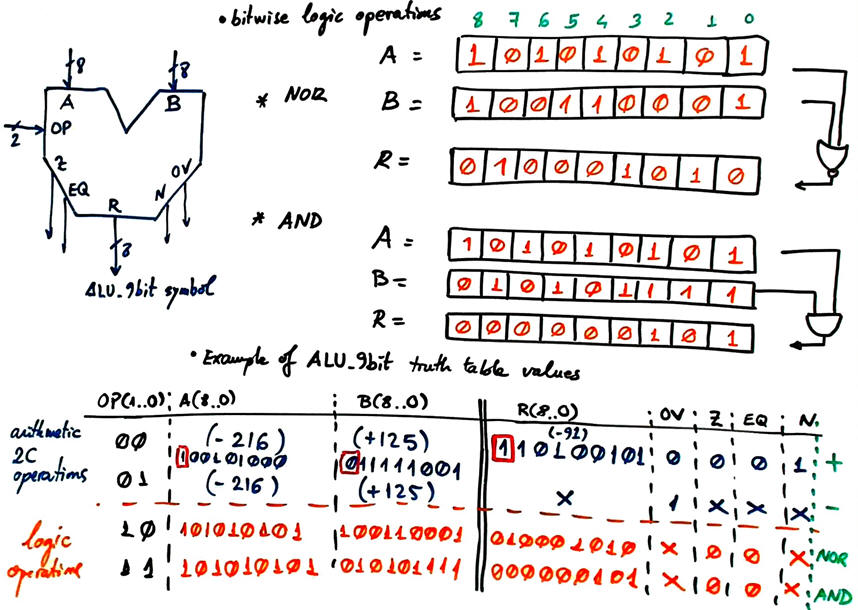 • bitwise logic operations
8 7 6 5 4 3 2 1 0
A = 1 0 1 0 1 0 1 0 1
* NOR
B = 1 0 0 1 1 0 0 0 1
R = 0 1 0 0 0 1 0 1 0
* AND
A = 1 0 1 0 1 0 1 0 1
B = 0 1 0 1 0 1 1 1 1
R = 0 0 0 0 0 0 1 0 1
8
8
A
B
2
OP
Z
EQ
R
N
OV
ALU_9bit symbol
• Example of ALU_9bit truth table values
OP(1..0) A(8..0) B(8..0) R(8..0) OV Z EQ N
arithmetic
2C
operations
00 (-216) (+125) (-91)
100101000 011111001 110100101 0 0 0 1 +
01 (-216) (+125) X 1 X X X -
logic
operations
10 101010101 100110001 010001010 X 0 0 X NOR
11 101010101 010101111 000000101 X 0 0 X AND